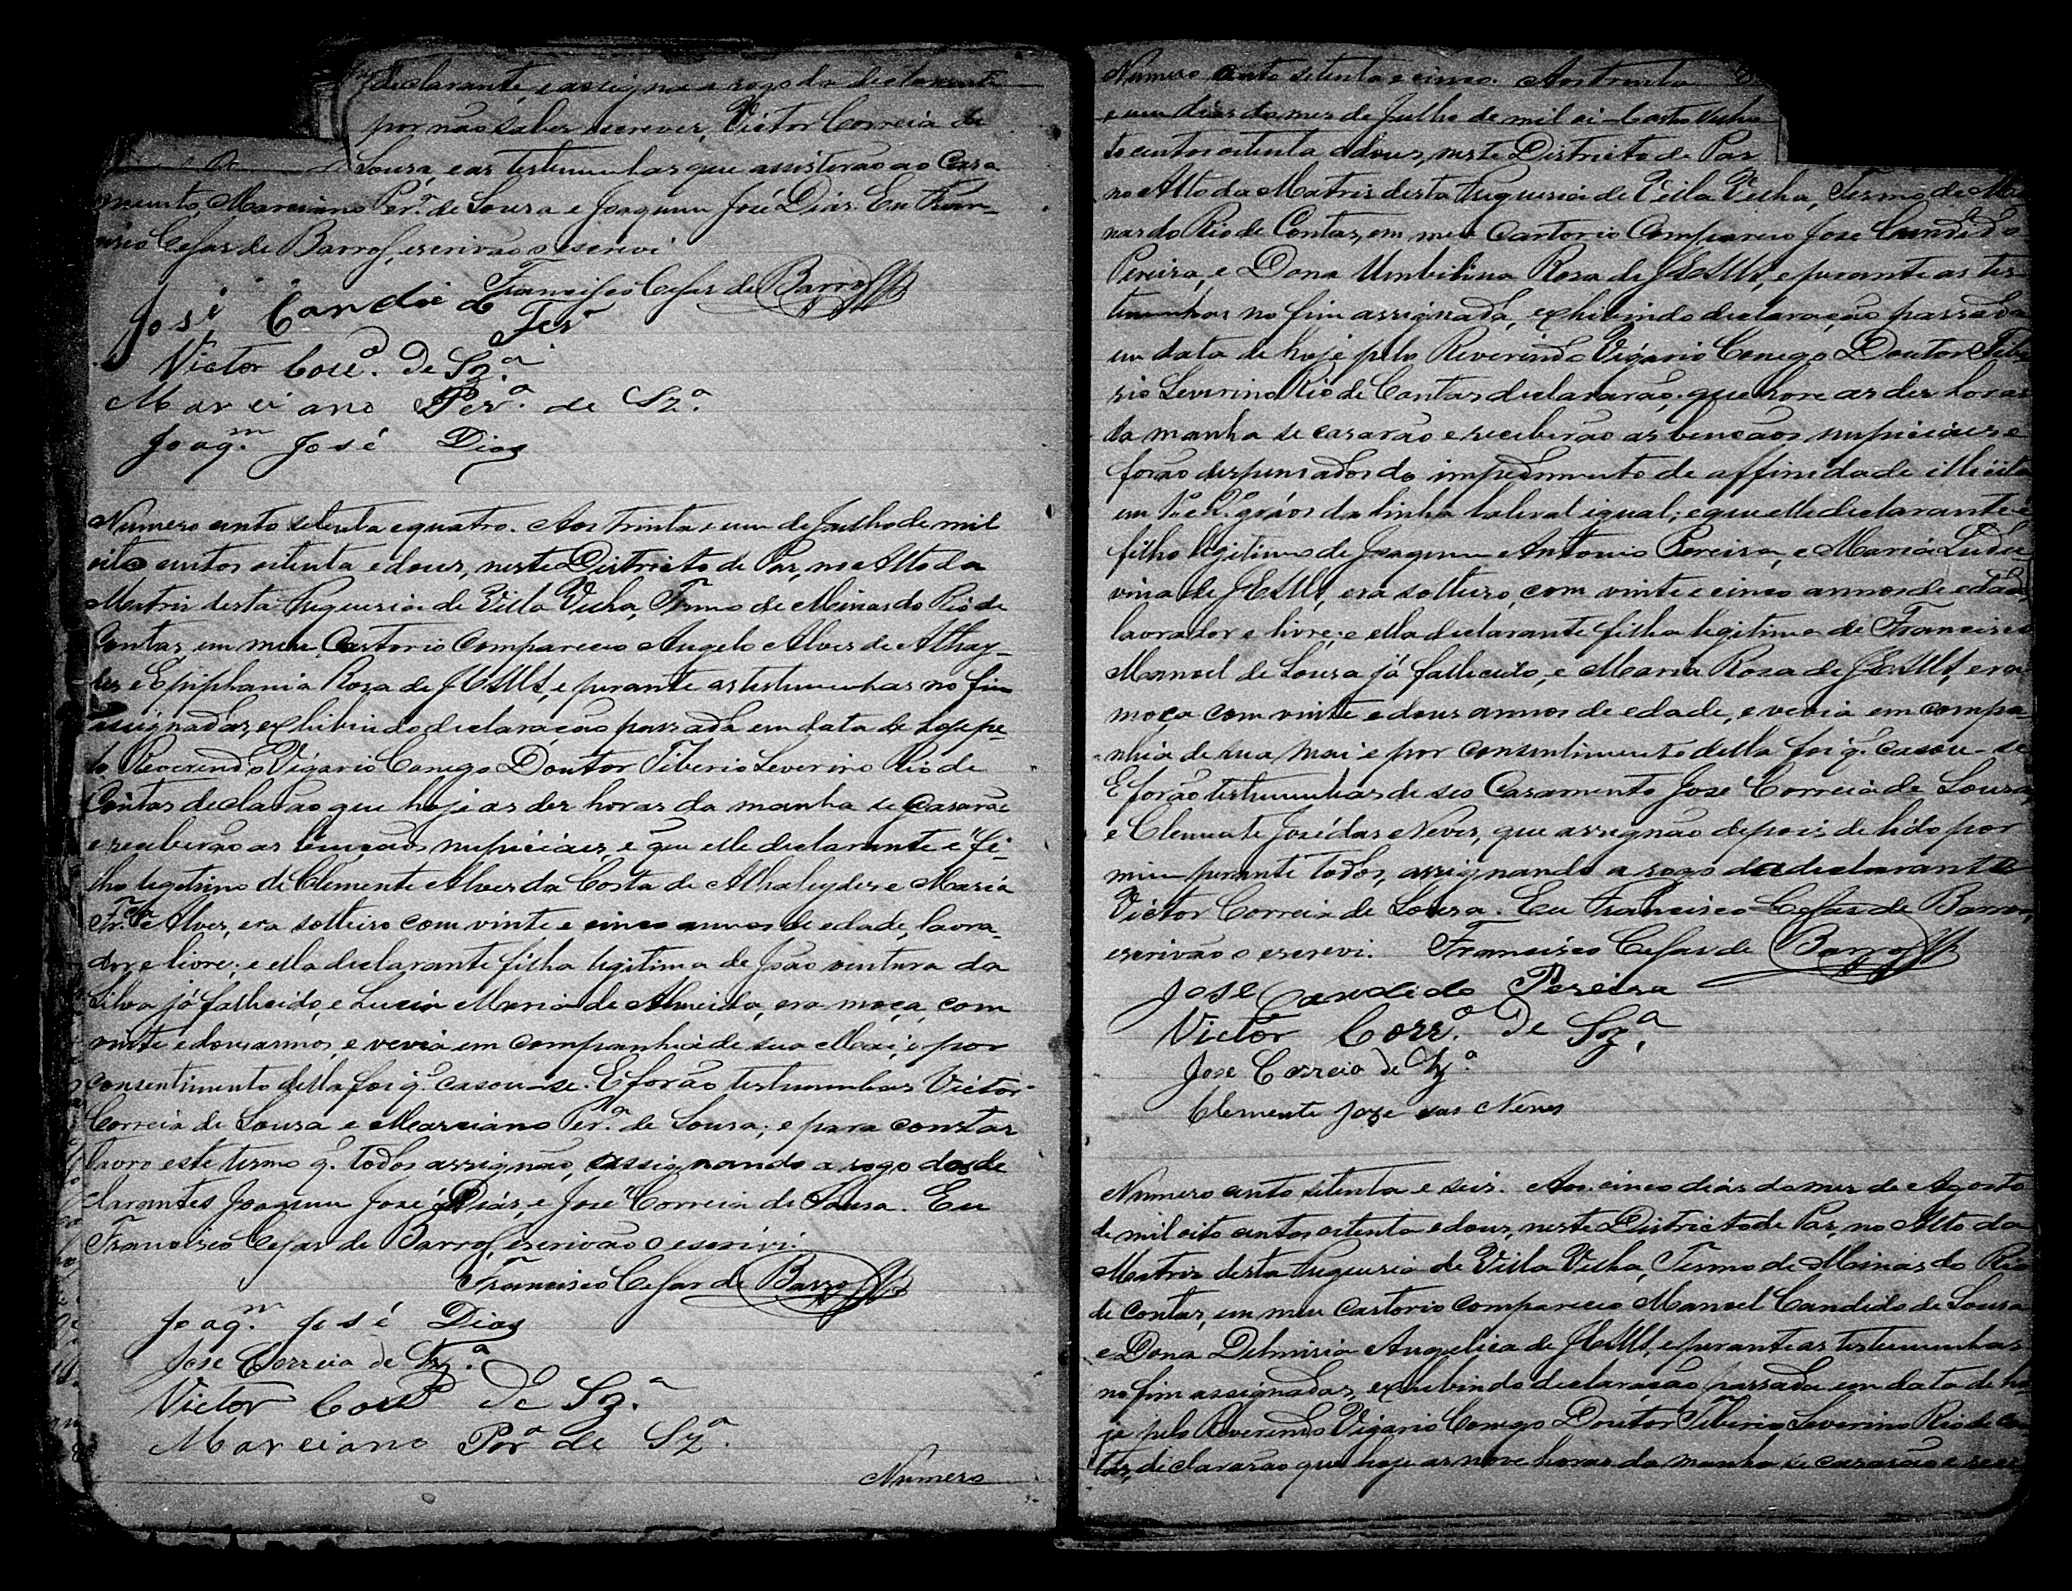 declarante, e assigna a rogo da declarante
por não saber escrever, Victor Correia de
Sousa, e as testemunhas que assisterão ao Casa
mento, Marciano Per.ª de Sousa e Joaquim José Dias. Eu Fran-
cisco Cesar de Barros, escrivão o escrevi
Francisco Cesar de Barros
José Candido Per.ª
Victor Corr.ª de Sz.ª
Marciano Per.ª de Sz.ª
Joaq.m José Dias
Numero cento setenta e quatro. Aos trinta e um de Julho de mil
oito centos oitenta e dous, neste Districto de Paz, no Alto da
Matriz desta Freguesia de Villa Velha, Termo de Minas do Rio de
Contas, em meu Cartorio compareceo Angelo Alves de Athay-
des e Epiphania Roza de JESUS, e perante as testemunhas no fim
assignadas, exhibindo declaração passada em data de hoje pe-
lo Reverendo Vigario Conego Doutor Tiberio Severino Rio de
Contas declarão que hoje as dez horas da manha se casarão
e receberão as bençãos nupiciaes, e que elle declarante é fi-
lho legitimo de Clemente Alves da Costa de Athaydes e Maria
Fr.ca Alves, era solteiro com vinte e cinco annos de edade, lavra-
dor, e livre; e ella declarante filha legitima de João ventura da
Silva já fallecido, e Lucia Maria de Almeida, era moça, com
vinte e dous annos, e vevia em companhia de sua Mai, e por
consentimento della foi q.' casou-se. E forão testemunhas Victor
Correia de Sousa e Marciano Per.ª de Sousa; e para constar
lavro este termo q.' todos assignão, assignando a rogo dos de
clarantes Joaquim José Dias, e Jose Correia de Sousa. Eu
Francisco Cesar de Barros, escrivão o escrevi.
Francisco Cesar de Barros
Joaq.m José Dias
Jose Correia de Sz.ª
Victor Corr.ª de Sz.ª
Marciano Per.ª de Sz.ª
Numero
Numero cento setenta e cinco. Aos trinta
e um dias do mes de Julho de mil oi
to centos oitenta e dous, neste Districto de Paz
no Alto da Matriz desta Freguesia de Villa Velha, Termo de Mi
nas do Rio de Contas, em meu Cartorio compareceo Jose Candido
Pereira, e Dona Umbilina Rosa de JESUS, e perante as tes
temunhas no fim assignada, exhibindo declaração passada
em data de hoje pelo Reverendo Vigario Conego Doutor Tibe
rio Severino Rio de Contas declararão, que hoje as dez horas
da manha se casarão e receberão as bençãos nupiciaes e
forão despensados do impedimento de affinidade illicita
em 1.º e 2.º gráos da linha lateral igual; e que elle declarante é
filho legitimo de Joaquim Antonio Pereira, e Maria Ludu
vina de JESUS, era solteiro, com vinte e cinco annos de edade,
lavrador e livre; e ella declarante filha legitima de Francisco
Manoel de Sousa já fallecido, e Maria Rosa de JESUS, era
moça com vinte e dous annos de edade, e vevia em compa-
nhia de sua Mai e por consentimento della foi q.' casou-se
E forão testemunhas de seo Casamento Jose Correia de Sousa,
e Clemente José das Neves, que assignão depois de lido por
mim perante todos, assignando a rogo da declarante
Victor Correia de Sousa. Eu Francisco Cesar de Barros,
escrivão o escrevi. Francisco Cesar de Barros
Jose Candido Pereira
Victor Corr.ª de Sz.ª
Jose Correia de Sz.ª
Clemente Joze das Neves
Numero cento setenta e seis. Aos cinco dias do mes de Agosto
de mil oito centos oitenta e dous, neste Districto de Paz, no Alto da
Matriz desta Freguesia de Villa Velha, Termo de Minas do Rio
de Contas, em meu Cartorio compareceo Manoel Candido de Sousa
e Dona Delmiria Angelica de JESUS, e perante as testemunhas
no fim assignadas, exhibindo declaração passada em data de ho
je pelo Reverendo Vigario Conego Doutor Tiberio Severino Rio de Con
tas, declararão que hoje as nove horas da manha se casarão e rece